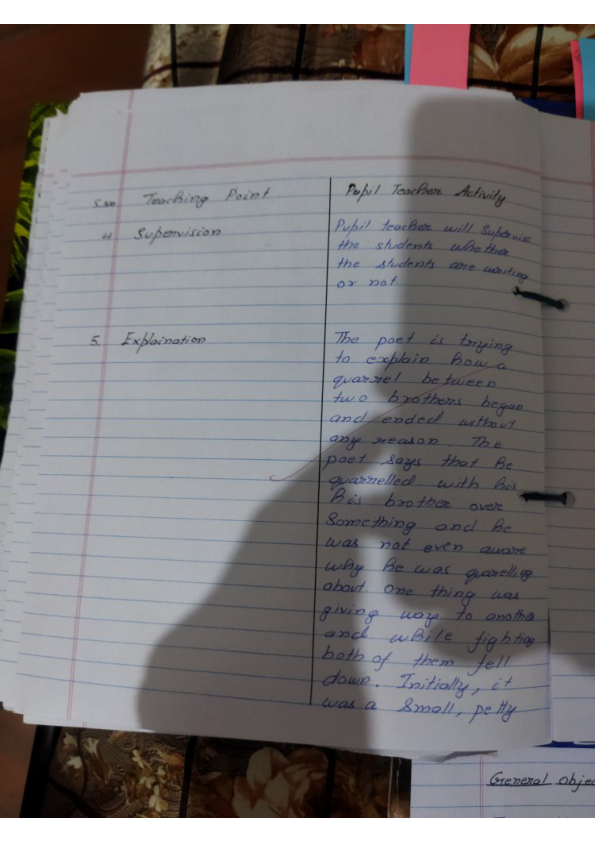 S.No Teaching Point Pupil Teacher Activity
4. Supervision Pupil teacher will Supervise
the students whether
the students are writing
or not
5. Explaination The poet is trying
to explain how a
quarrel between
two brothers began
and ended without
any reason. The
poet says that he
quarrelled with his
his brother over
Something and he
was not even aware
why he was quarelling
about. One thing was
giving way to another
and while fighting
both of them fell
down. Initially, it
was a small, petty
General Objec